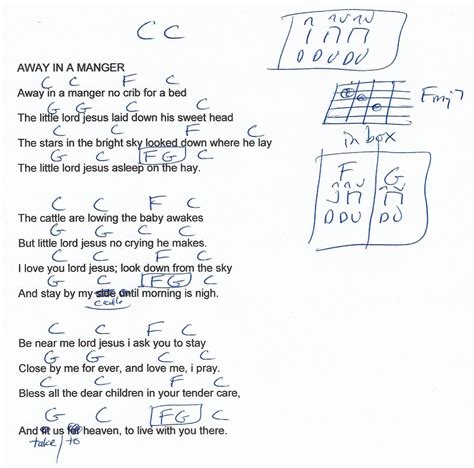 C C
D D U D U
AWAY IN A MANGER
C C F C
Away in a manger no crib for a bed
G G C C
The little lord jesus laid down his sweet head
Fmj7
C C F C
The stars in the bright sky looked down where he lay
in box
G C FG C
The little lord jesus asleep on the hay.
F G
D D U D U
C C F C
The cattle are lowing the baby awakes
G G C C
But little lord jesus no crying he makes.
C C F C
I love you lord jesus; look down from the sky
G C FG C
And stay by my side until morning is nigh.
C C F C
Be near me lord jesus i ask you to stay
G G C C
Close by me for ever, and love me, i pray.
C C F C
Bless all the dear children in your tender care,
G C FG C
And fit us for heaven, to live with you there.
take / to